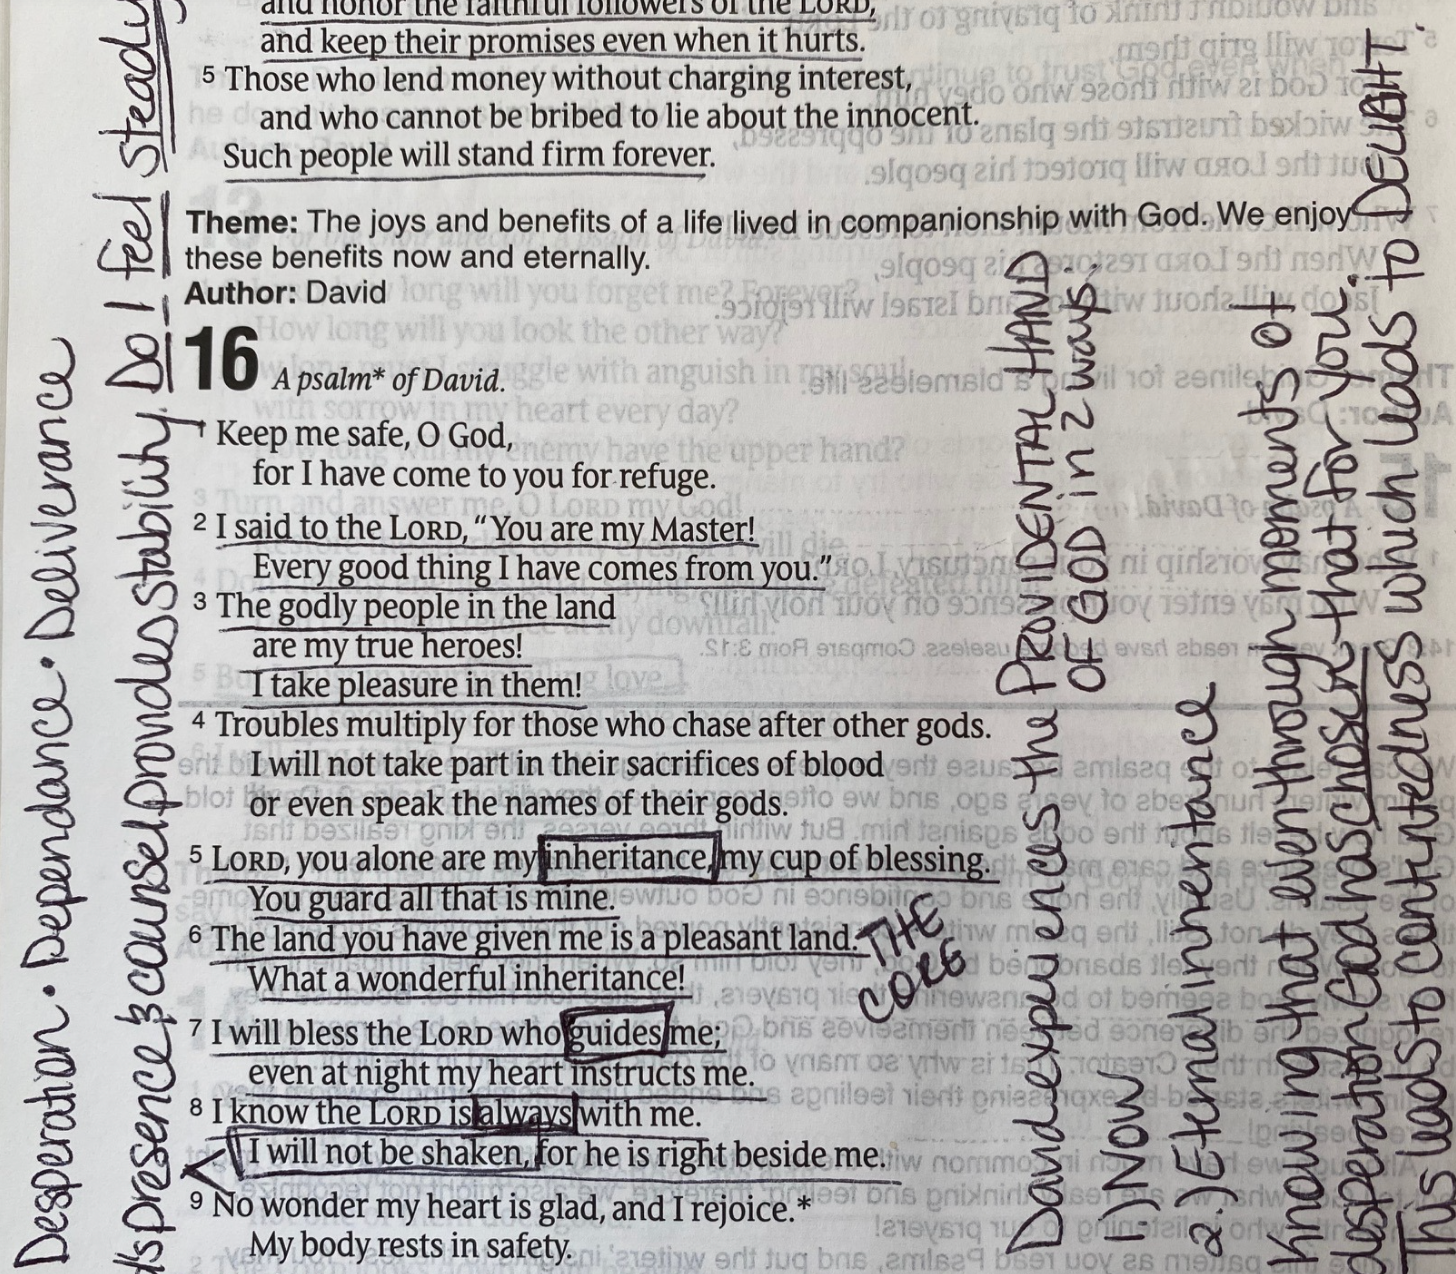 and honor the faithful followers of the LORD,
and keep their promises even when it hurts.
5 Those who lend money without charging interest,
and who cannot be bribed to lie about the innocent.
Such people will stand firm forever.
Theme: The joys and benefits of a life lived in companionship with God. We enjoy
these benefits now and eternally.
Author: David
16 A psalm* of David.
1 Keep me safe, O God,
for I have come to you for refuge.
2 I said to the LORD, “You are my Master!
Every good thing I have comes from you.”
3 The godly people in the land
are my true heroes!
I take pleasure in them!
4 Troubles multiply for those who chase after other gods.
I will not take part in their sacrifices of blood
or even speak the names of their gods.
5 LORD, you alone are my inheritance, my cup of blessing.
You guard all that is mine.
6 The land you have given me is a pleasant land.
What a wonderful inheritance!
THE
CORE
7 I will bless the LORD who guides me;
even at night my heart instructs me.
8 I know the LORD is always with me.
I will not be shaken, for he is right beside me.
9 No wonder my heart is glad, and I rejoice.*
My body rests in safety.
Desperation · Dependance · Deliverance
presence & counsel provides stability. Do I feel steady
David experiences the PROVIDENTAL HAND
OF GOD in 2 ways:
1) NOW
2.) Eternal inheritance
Knowing that even through moments of
desperation God has chosen that for you.
This leads to contentedness which leads to DELIGHT.